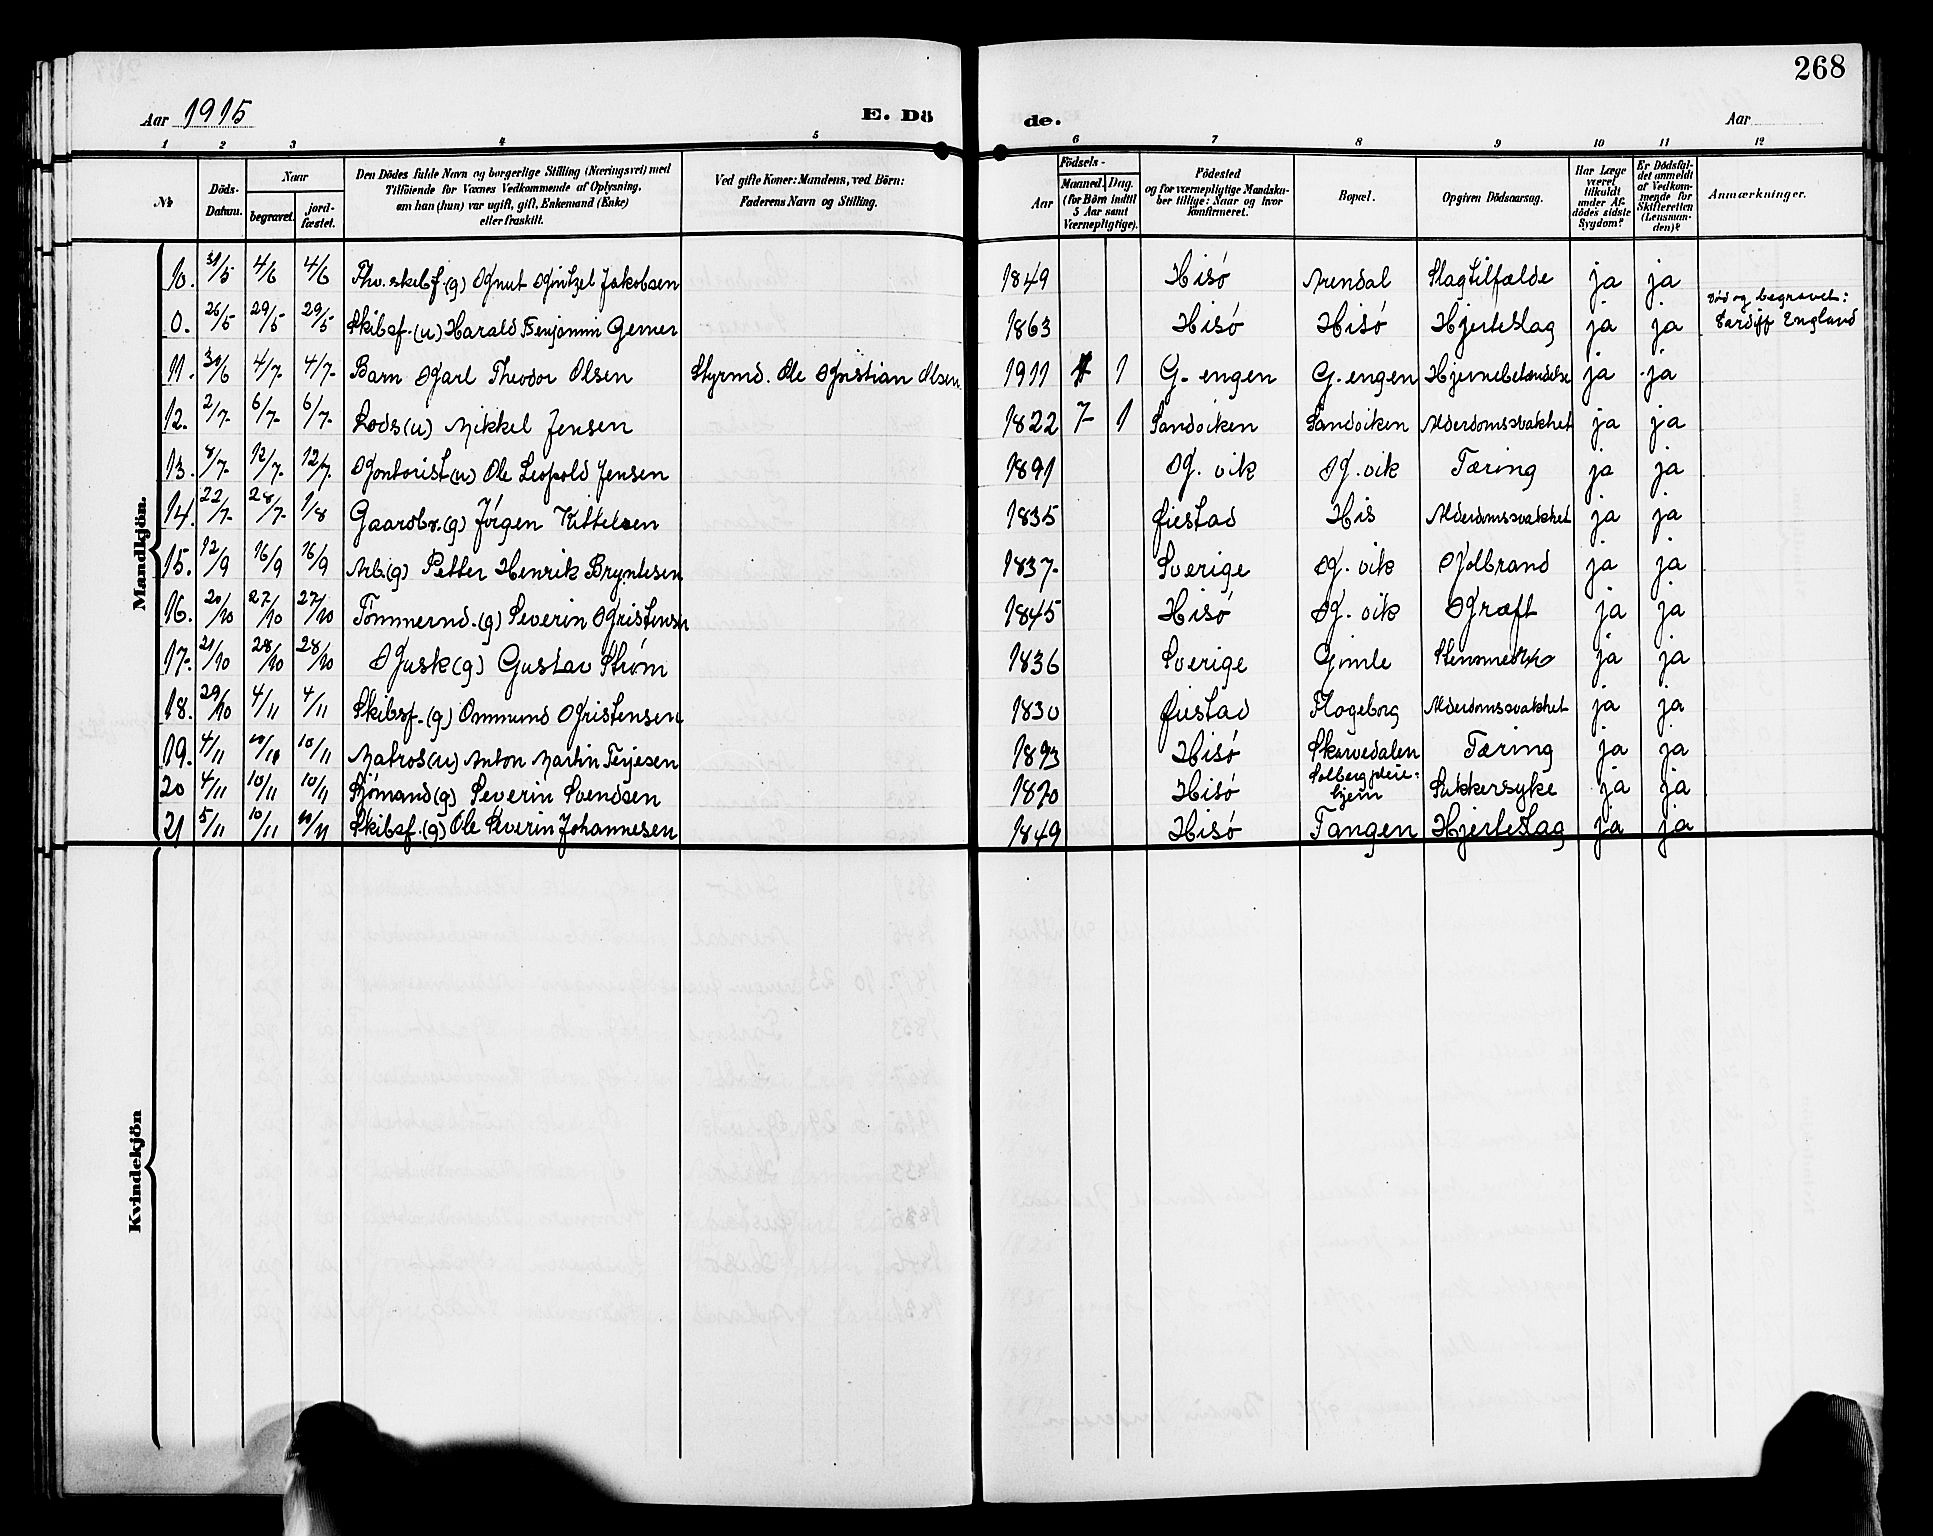 268
Aar 1915 E. Dö de. Aar
1 2 3 4 5 6 7 8 9 10 11 12
№ Döds-Datum. Naar begravet. jord-fæstet. Den Dödes fulde Navn og borgerlige Stilling (Næringsvei) med Tilföiende for Voxnes Vedkommende af Oplysning, om han (hun) var ugift, gift, Enkemand (Enke) eller fraskilt. Ved gifte Koner: Mandens, ved Börn: Faderens Navn og Stilling. Födsels- Aar Maaned. Dag. (for Börn indtil 5 Aar samt Værnepligtige). Födested og for værnepligtige Mandskaber tillige: Naar og hvor konfirmeret. Bopæl. Opgiven Dödsaarsag. Har Læge været tilkaldt under Afdödes sidste Sygdom? Er Dödsfaldet anmeldt af Vedkommende for Skifteretten (Lensmanden)? Anmærkninger.
Mandkjön.
10. 31/5 4/6 4/6 Fhv. skibsf. (g) Knut Gjntzel Jakobsen 1849 Hisö Arendal Slagtilfælde ja ja
0. 26/5 29/5 29/5 Skibsf. (u) Harald Benjamin Gerner 1863 Hisö Hisö Hjerteslag ja ja död og begravet: Cardiff England
11. 30/6 4/7 4/7 Barn Karl Theodor Olsen Styrmd. Ole Kristian Olsen 1911 1 G. engen G. engen Hjernebetændelse ja ja
12. 2/7 6/7 6/7 Lods (u) Mikkel Jensen 1822 7 1 Sandviken Sandviken Alderdomssvakhet ja ja
13. 8/7 12/7 12/7 Kontorist (u) Ole Leopold Jensen 1891 K. vik K. vik Tæring ja ja
14. 22/7 28/7 1/8 Gaardbr. (g) Jörgen Kittelsen 1835 Öiestad His Alderdomssvakhet ja ja
15. 12/9 16/9 16/9 Arb. (g) Petter Henrik Bryntesen 1837 Sverige K. vik Koldbrand ja ja
16. 20/10 27/10 27/10 Tömmermd. (g) Severin Kristensen 1845 Hisö K. vik Kræft ja ja
17. 21/10 28/10 28/10 Kusk (g) Gustav Ström 1836 Sverige Gimle ja ja
18. 29/10 4/11 4/11 Skibsf. (g) Ommund Kristensen 1830 Öiestad Flageborg Alderdomssvakhet ja ja
19. 4/11 10/11 10/11 Matros (u) Anton Martin Terjesen 1893 Hisö Skarvedalen Tæring ja ja
20 4/11 10/11 10/11 Sjömand (g) Severin Svendsen 1870 Hisö Solberg pleie-hjem Sukkersyke ja ja
21 5/11 10/11 10/11 Skibsf. (g) Ole Severin Johannesen 1849 Hisö Tangen Hjerteslag ja ja
Kvindekjön